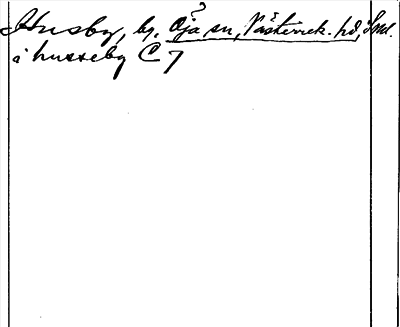 Husby, by, Öja sn, Västerrek. hd, Sml.
i husseby C 7